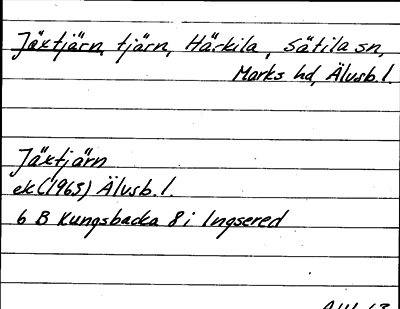 Jäxtjärn, tjärn, Häckila, Sätila sn,
Marks hd, Älvsb. l.
Jäxtjärn
ek (1965) Älvsb. l.
6 B Kungsbacka 8 i Ingsered